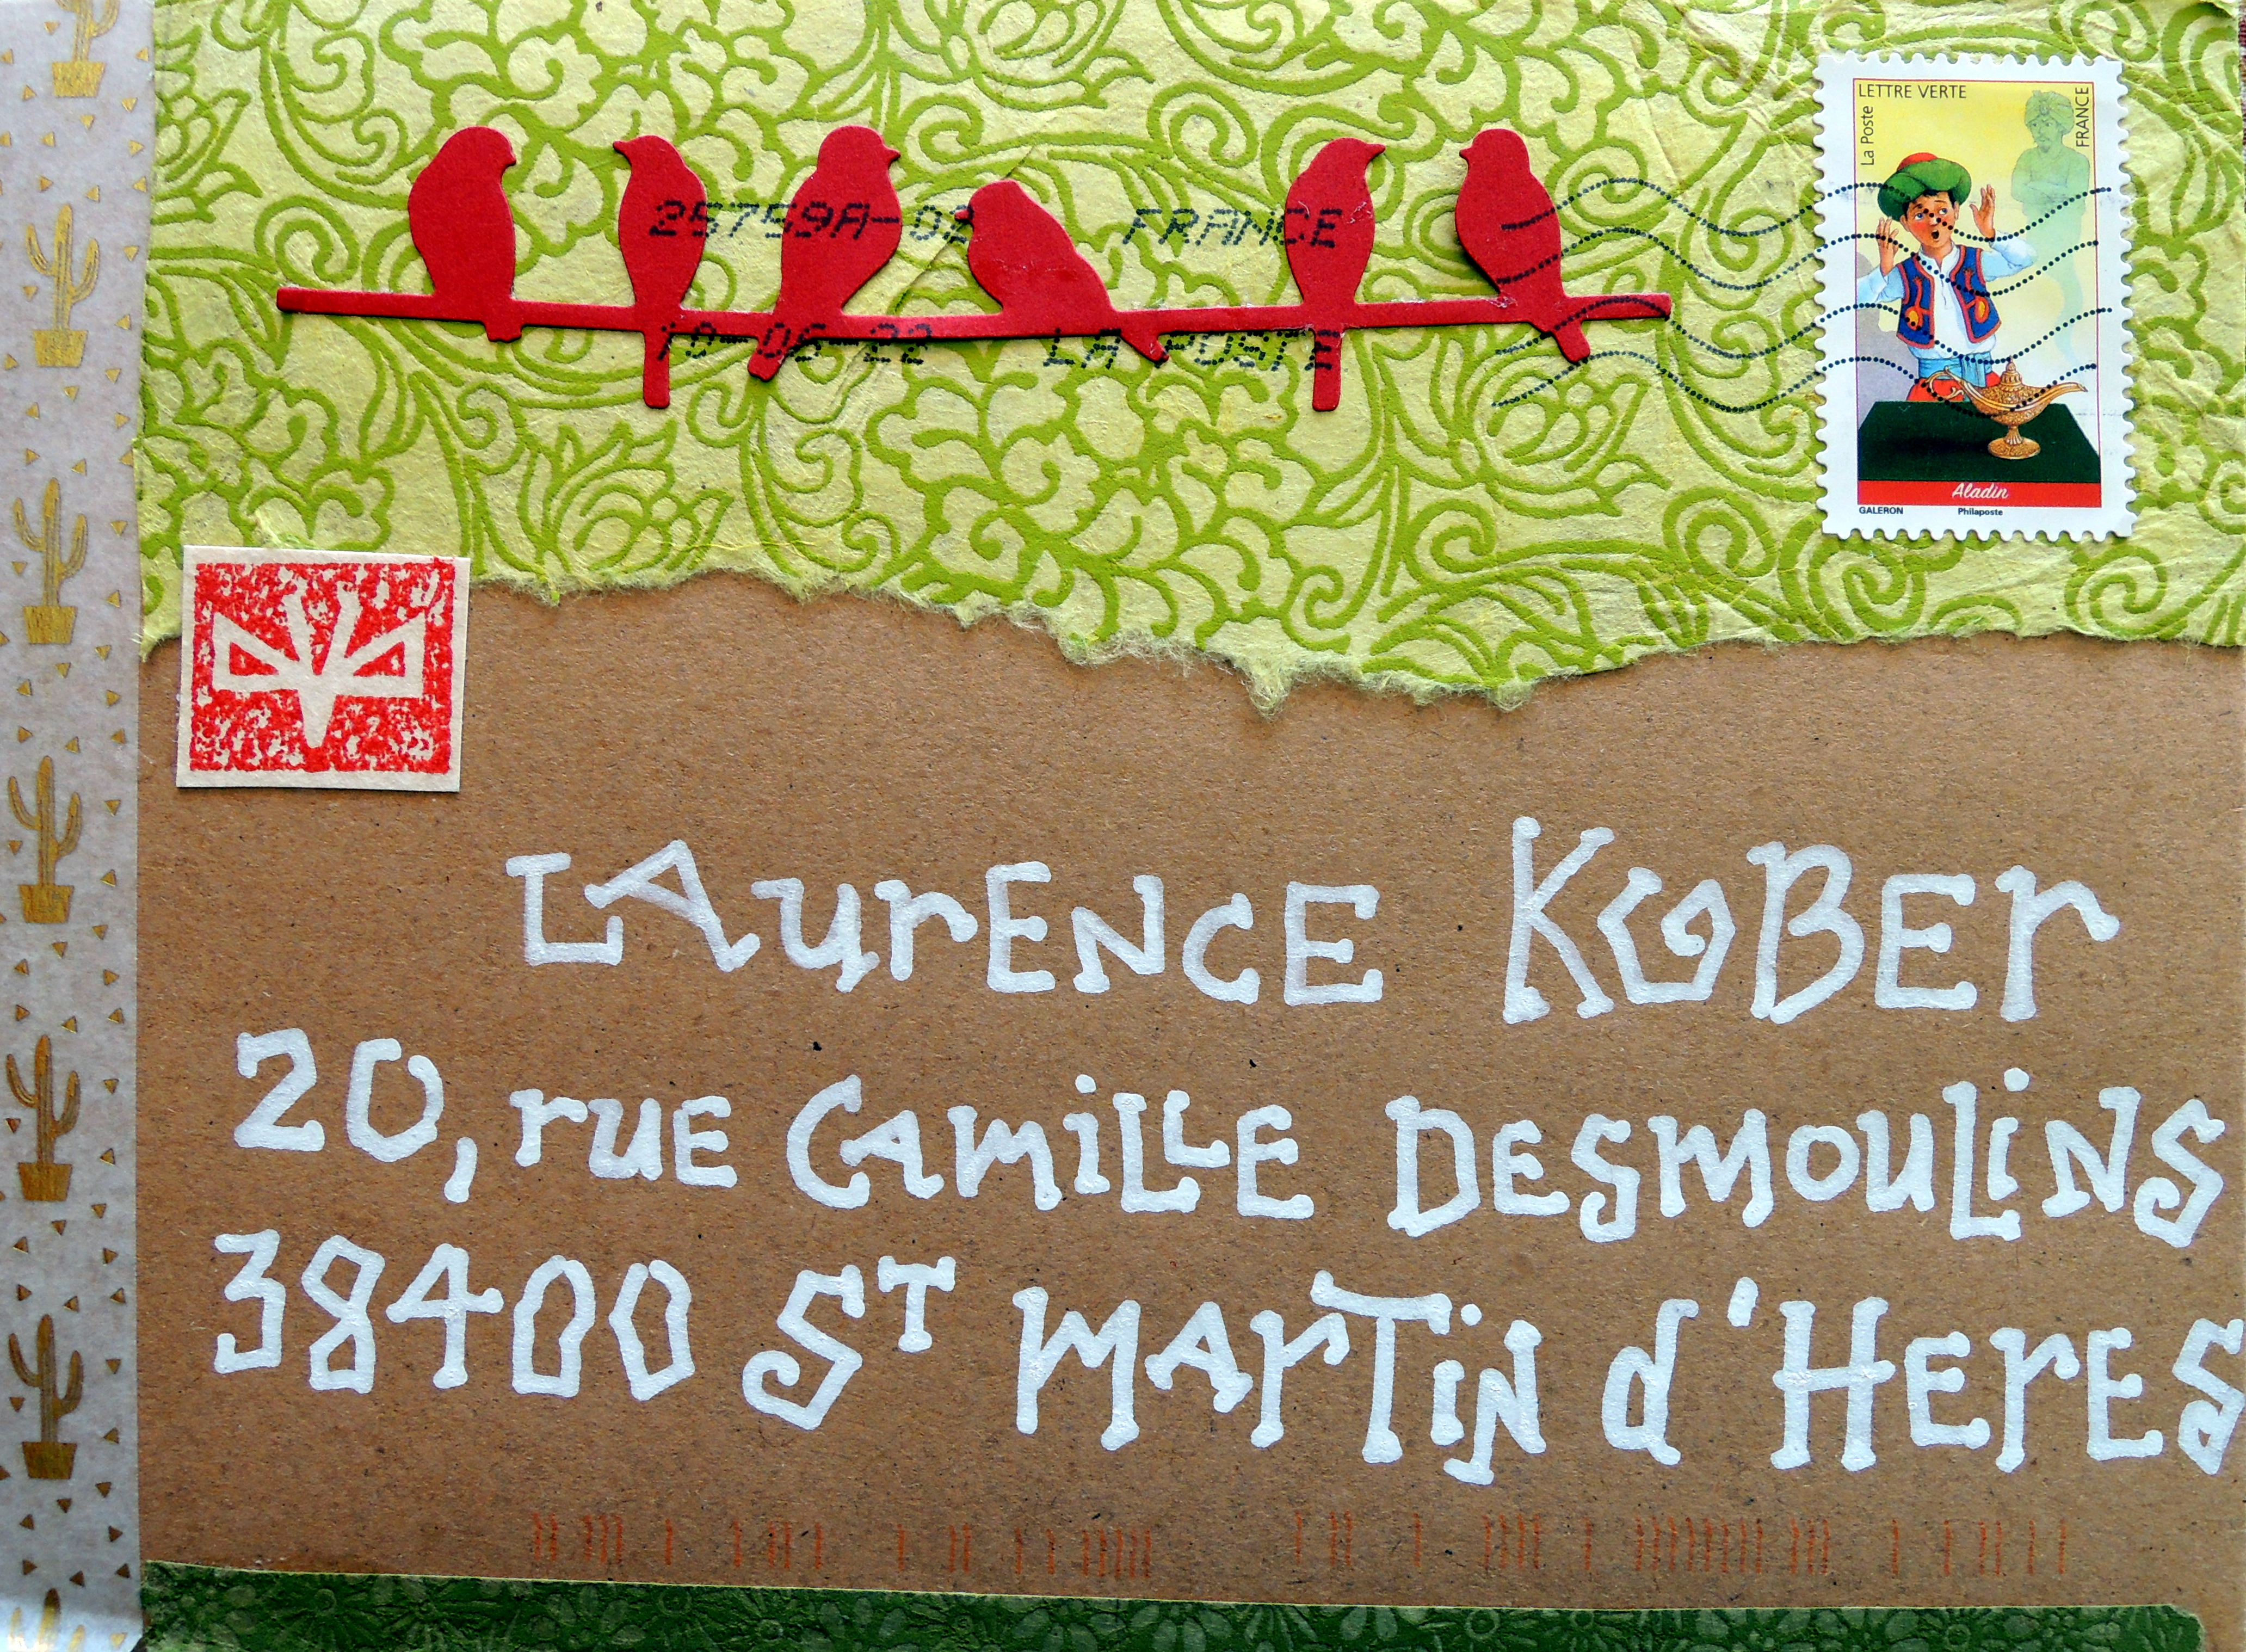 LETTRE VERTE
La Poste
FRANCE
25759A-02 FRANCE
10-06-22 LA POSTE
Aladin
GALERON Philaposte
LAurENCE KOBEr
20, ruE CAmiLLE DESmOuLiNS
38400 ST mArTiN d'HErES